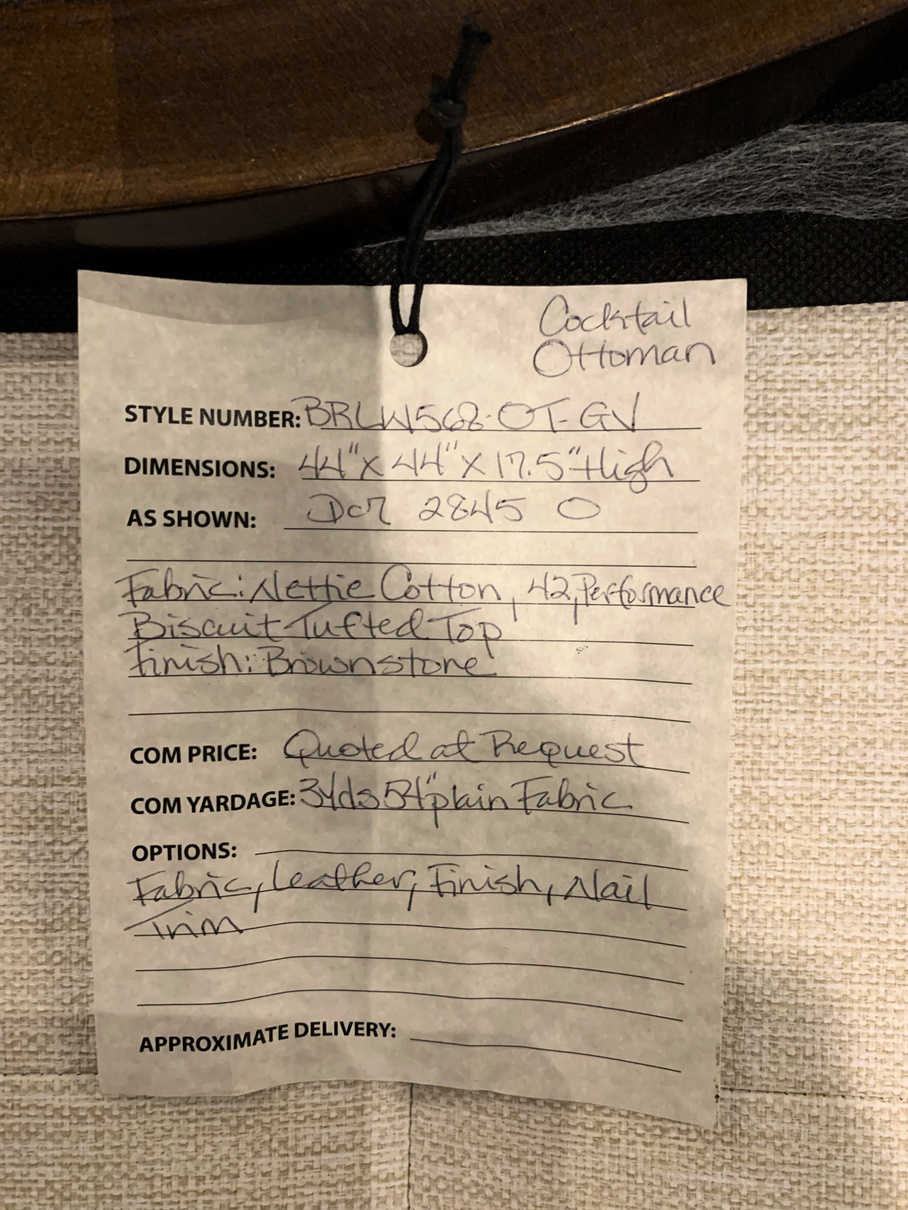 Cocktail
Ottoman
STYLE NUMBER: BRLW568-OT-GV
DIMENSIONS: 44" X 44" X 17.5" High
AS SHOWN: 2845 O
Fabric: Nettie Cotton, 42, Performance
Biscuit Tufted Top
Finish: Brownstone
COM PRICE: Quoted at Request
COM YARDAGE: 3yds 54" plain Fabric
OPTIONS:
Fabric, Leather, Finish, Nail
Trim
APPROXIMATE DELIVERY: